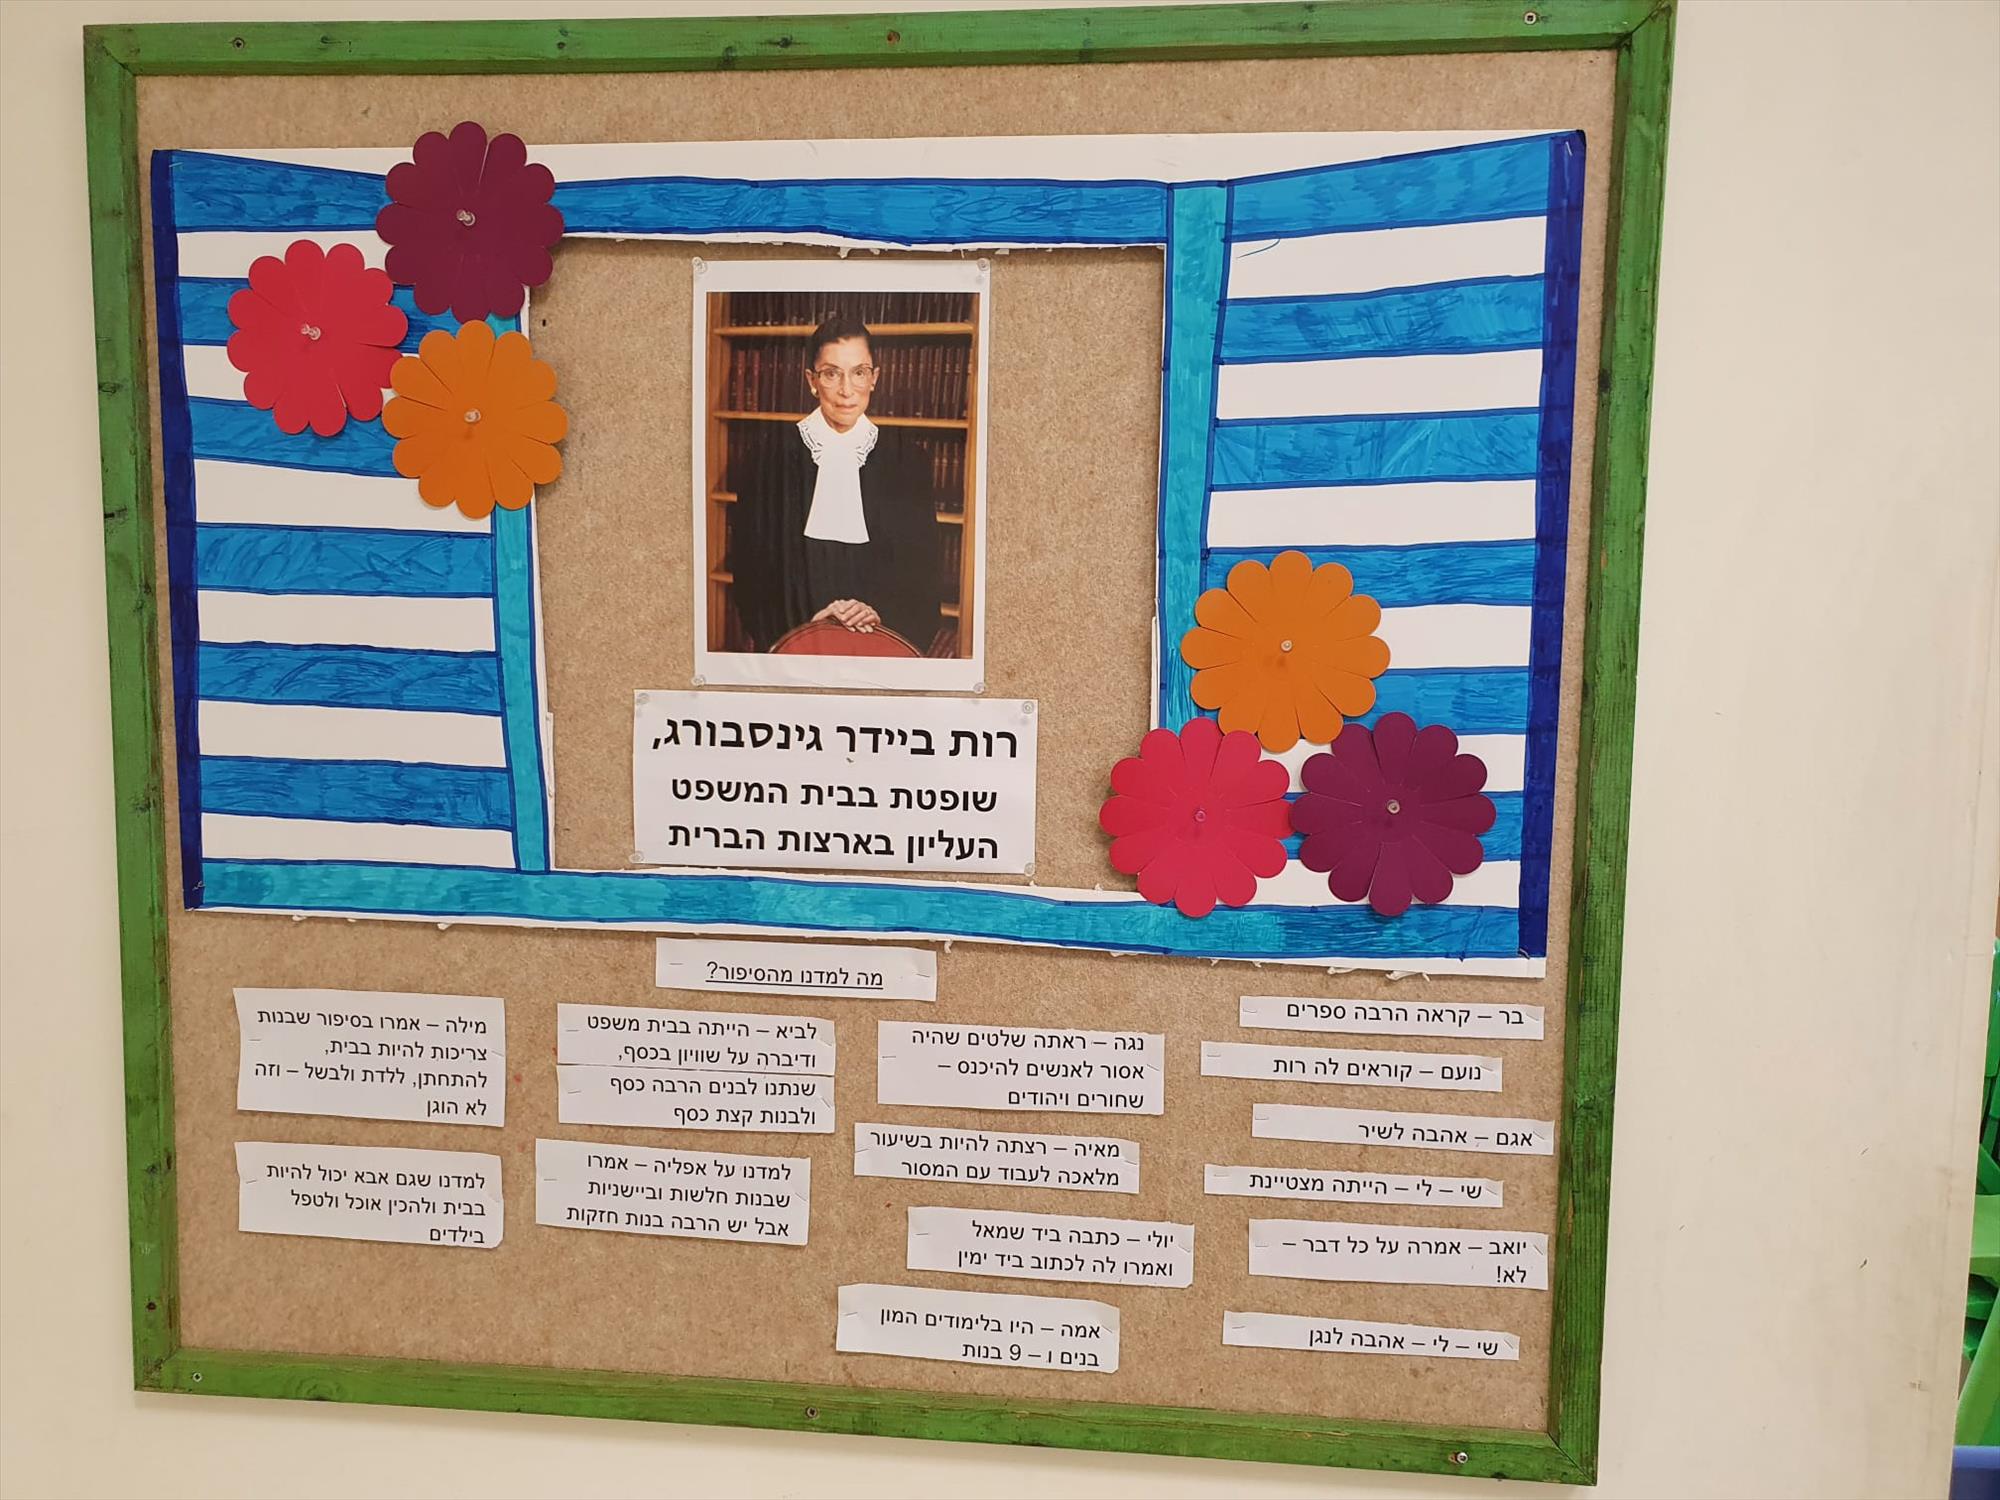 רות ביידר גינסבורג,
שופטת בבית המשפט
העליון בארצות הברית
מה למדנו מהסיפור?
בר – קראה הרבה ספרים
נועם – קוראים לה רות
אגם – אהבה לשיר
שי – לי – הייתה מצטיינת
יואב – אמרה על כל דבר –
לא!
שי – לי – אהבה לנגן
נגה – ראתה שלטים שהיה
אסור לאנשים להיכנס –
שחורים ויהודים
מאיה – רצתה להיות בשיעור
מלאכה לעבוד עם המסור
יולי – כתבה ביד שמאל
ואמרו לה לכתוב ביד ימין
אמה – היו בלימודים המון
בנים ו – 9 בנות
לביא – הייתה בבית משפט
ודיברה על שוויון בכסף,
שנתנו לבנים הרבה כסף
ולבנות קצת כסף
למדנו על אפליה – אמרו
שבנות חלשות וביישניות
אבל יש הרבה בנות חזקות
מילה – אמרו בסיפור שבנות
צריכות להיות בבית,
להתחתן, ללדת ולבשל – וזה
לא הוגן
למדנו שגם אבא יכול להיות
בבית ולהכין אוכל ולטפל
בילדים